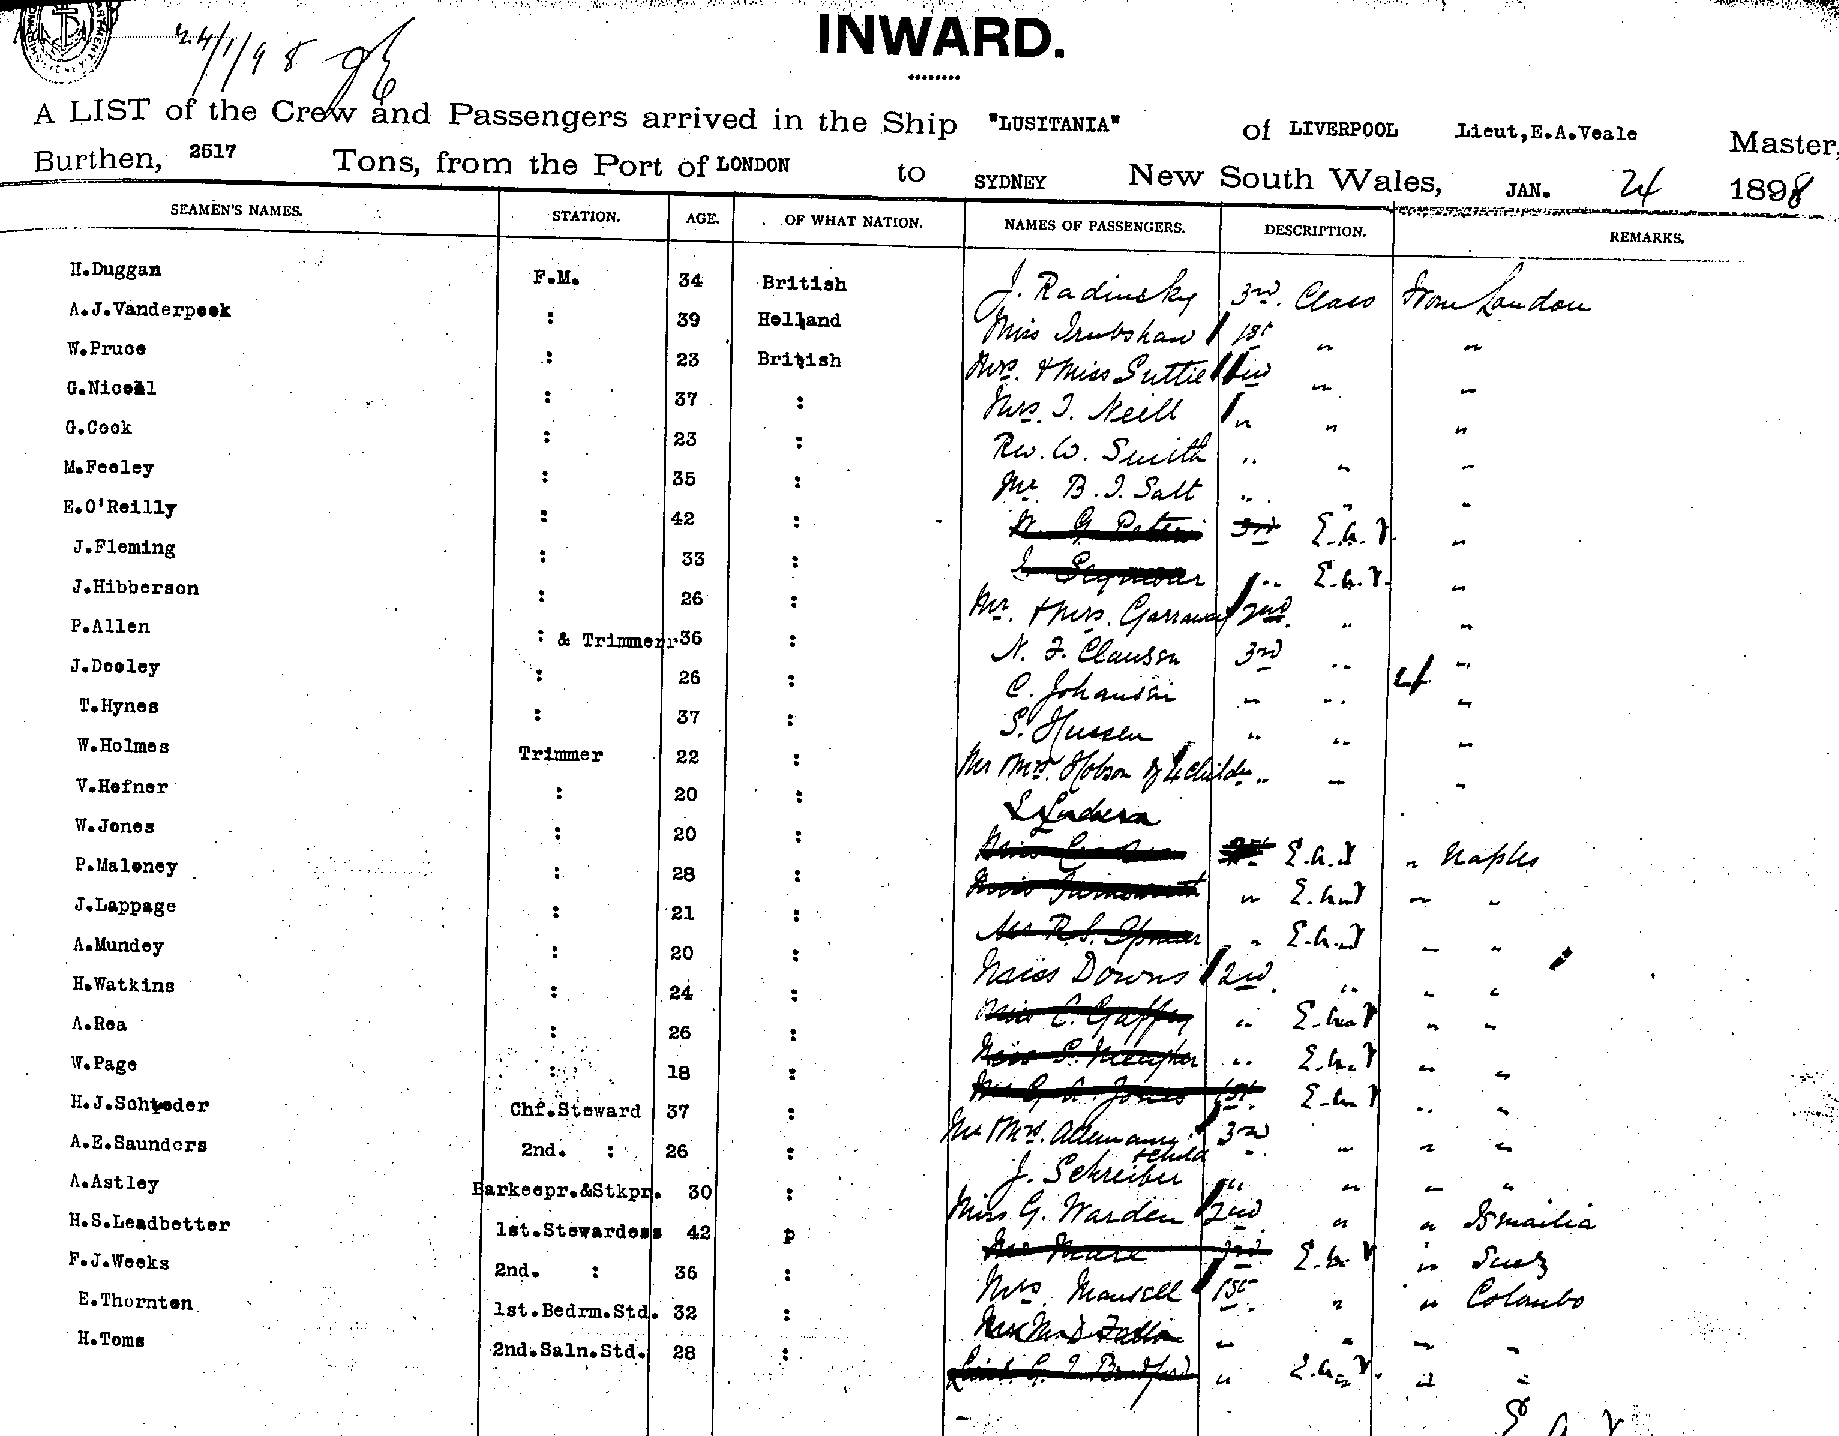 24/1/98
INWARD.
A LIST of the Crew and Passengers arrived in the Ship "LUSITANIA" of LIVERPOOL Lieut,E.A.Veale Master,
Burthen, 2517 Tons, from the Port of LONDON to SYDNEY New South Wales, JAN. 24 1898
SEAMEN'S NAMES. STATION. AGE. OF WHAT NATION. NAMES OF PASSENGERS. DESCRIPTION. REMARKS.
H.Duggan F.M. 34 British J. Radinsky 3rd. Class From London
A.J.Vanderpeek : 39 Holland Miss Trubshaw 1st " "
W.Pruce : 23 British Mrs. & Miss Suttie " "
G.Nicoll : 37 : Mrs. J. Neill " " "
G.Cook : 23 : Rev. W. Smith " " "
M.Feeley : 35 : Mr. B. J. Salt " " "
E.O'Reilly : 42 : 3rd "
J.Fleming : 33 : Seymour " "
J.Hibberson : 26 : Mr. & Mrs. Garraway 2nd. " "
P.Allen : & Trimmer 36 : N. F. Clausen 3rd " "
J.Dooley : 26 : C. Johanssen " " 4 "
T.Hynes : 37 : S. Hussen " " "
W.Holmes Trimmer 22 : Mr Mrs. Hobson & 4 childn " " "
V.Hefner : 20 :
W.Jones : 20 : " Naples
P.Maloney : 28 : " " "
J.Lappage : 21 : " " "
A.Mundey : 20 : Miss Downs 2nd. " " "
H.Watkins : 24 : Miss C. Gaffey " " "
A.Rea : 26 : Miss Meagher " " "
W.Page : 18 : Jones 1st. " "
H.J.Schroder Chf.Steward 37 : Mr Mrs. Allemann & child 3rd " " "
A.E.Saunders 2nd. : 26 : J. Schreiber " " " "
A.Astley Barkeepr.&Stkpr. 30 : Miss G. Warden 2nd " " Ismailia
H.S.Leadbetter 1st.Stewardess 42 p Mare 3rd " Suez
F.J.Weeks 2nd. : 36 : Mrs. Mansell 1st. " " Colombo
E.Thornton 1st.Bedrm.Std. 32 : " " " "
H.Toms 2nd.Saln.Std. 28 : " " "